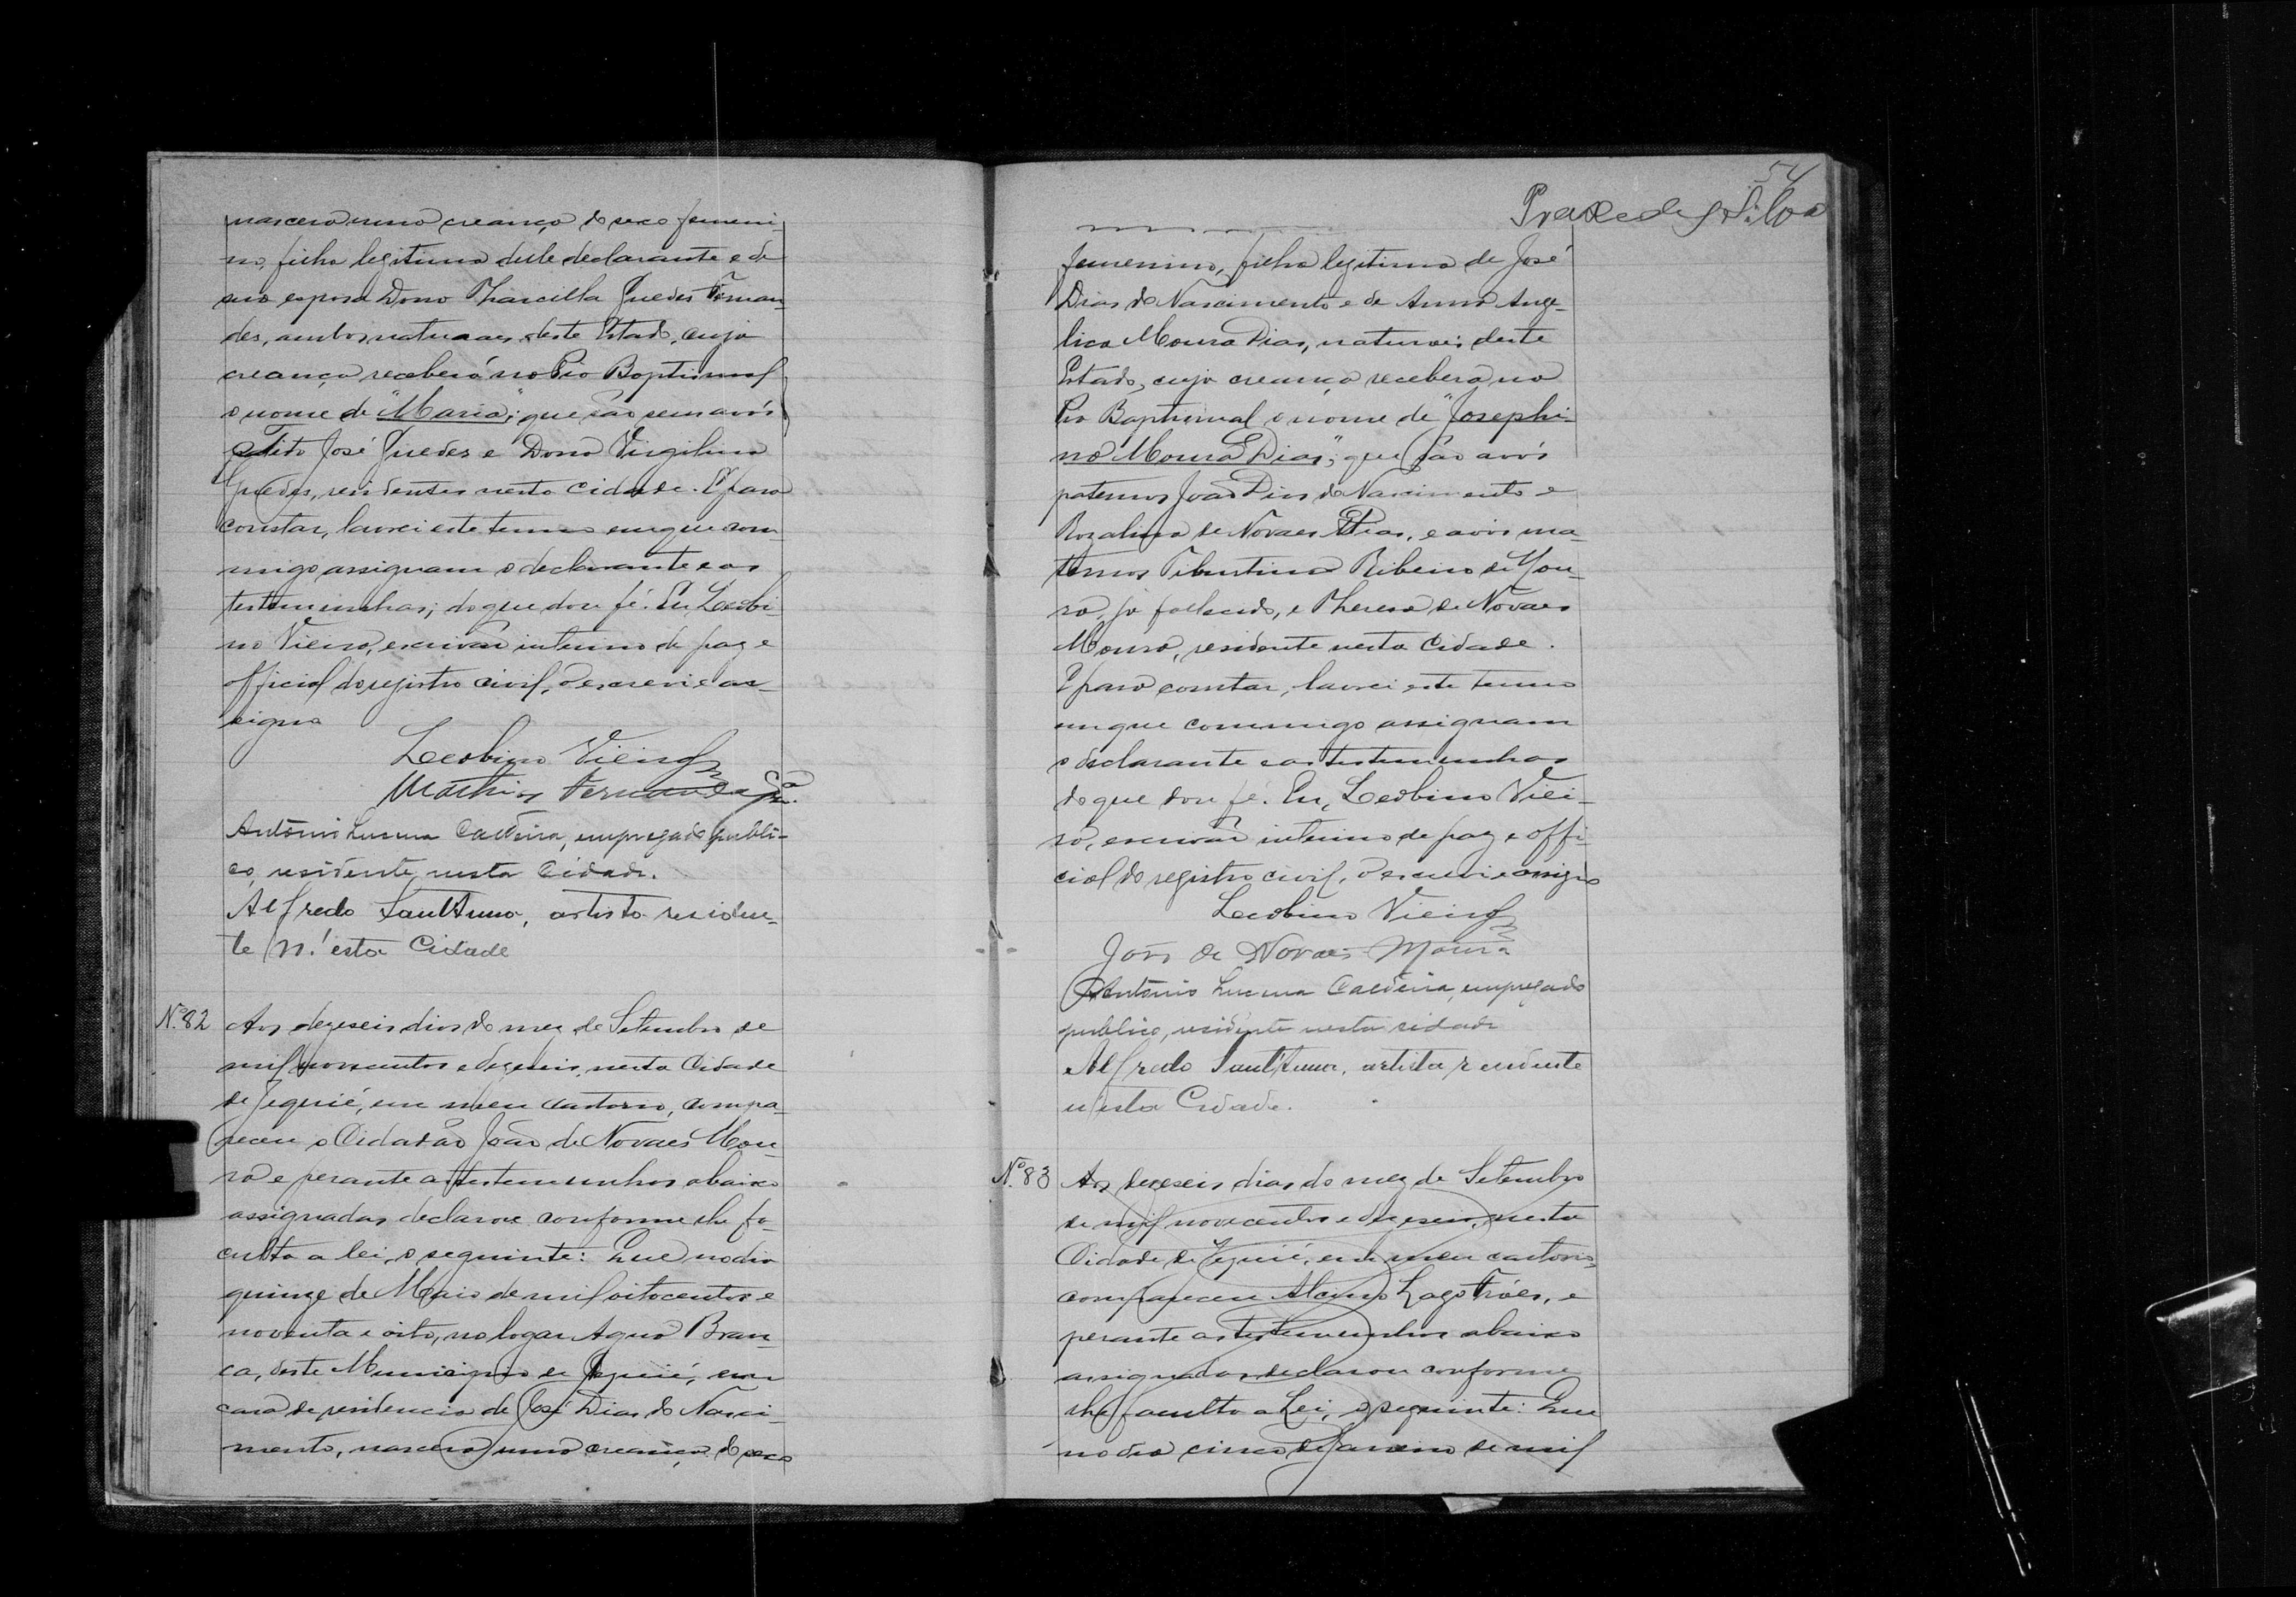 nascera uma creança do sexo femeni-
no, filha legitima delle declarante e de
sua esposa Dona Tharcilla Guedes Fernan-
des, ambos naturaes deste Estado, cuja
creança receberá na Pia Baptismal
o nome de "Maria"; que são seus avós
Tito José Guedes e Dona Virgilina
Guedes, residentes nesta Cidade. E para
constar, lavrei este termo em que com-
migo assignam o declarante e as
testemunhas; do que dou fé. Eu, Leobi-
no Vieira, escrivão interino de paz e
official do registro civil, o escrevi e as-
signo
Leobino Vieira
Mathias Fernandes
Antonio Lucena Caldeira, empregado publi-
co, residente nesta Cidade.
Alfredo Sant'Anna, artista residen-
te n'esta Cidade
Nº 82 Aos dezeseis dias do mez de Setembro de
mil novecentos e dezeseis, nesta Cidade
de Jequié, em meu Cartorio, compa-
receu o Cidadão João de Novaes Mou-
ra e perante as testemunhas abaixo
assignadas declarou conforme lhe fa-
culta a lei, o seguinte: Que no dia
quinze de Maio de mil oitocentos e
noventa e oito, no logar Agua Bran-
ca, deste Municipio de Jequié, em
casa de residencia de José Dias do Nasci-
mento, nascera uma creança do sexo
54
Praxedes Silva
femenino, filha legitima de José
Dias do Nascimento e de Anna Ange-
lica Moura Dias, naturais deste
Estado, cuja creança recebera na
Pia Baptismal o nome de "Josephi-
na Moura Dias"; que são avós
paternos João Dias do Nascimento e
Rozalina de Novaes Dias, e avós ma-
ternos Tiburtino Ribeiro de Mou-
ra, já fallecido, e Thereza de Novaes
Moura, residente nesta Cidade.
E para constar, lavrei este termo
em que commigo assignam
o declarante e as testemunhas
do que dou fé. Eu, Leobino Viei-
ra, escrivão interino de paz e offi-
cial do registro civil, o escrevi e assigno
Leobino Vieira
João de Novaes Moura
Antonio Lucena Caldeira, empregado
publico, residente nesta cidade
Alfredo Sant'Anna, artista residente
n'esta Cidade.
Nº 83 Aos dezeseis dias do mez de Setembro
de mil novecentos e dezeseis, nesta
Cidade de Jequié, em meu cartorio,
compareceu Lago Fróes, e
perante as testemunhas abaixo
assignadas declarou conforme
lhe faculta a Lei, o seguinte: Que
no dia cinco de Janeiro de mil